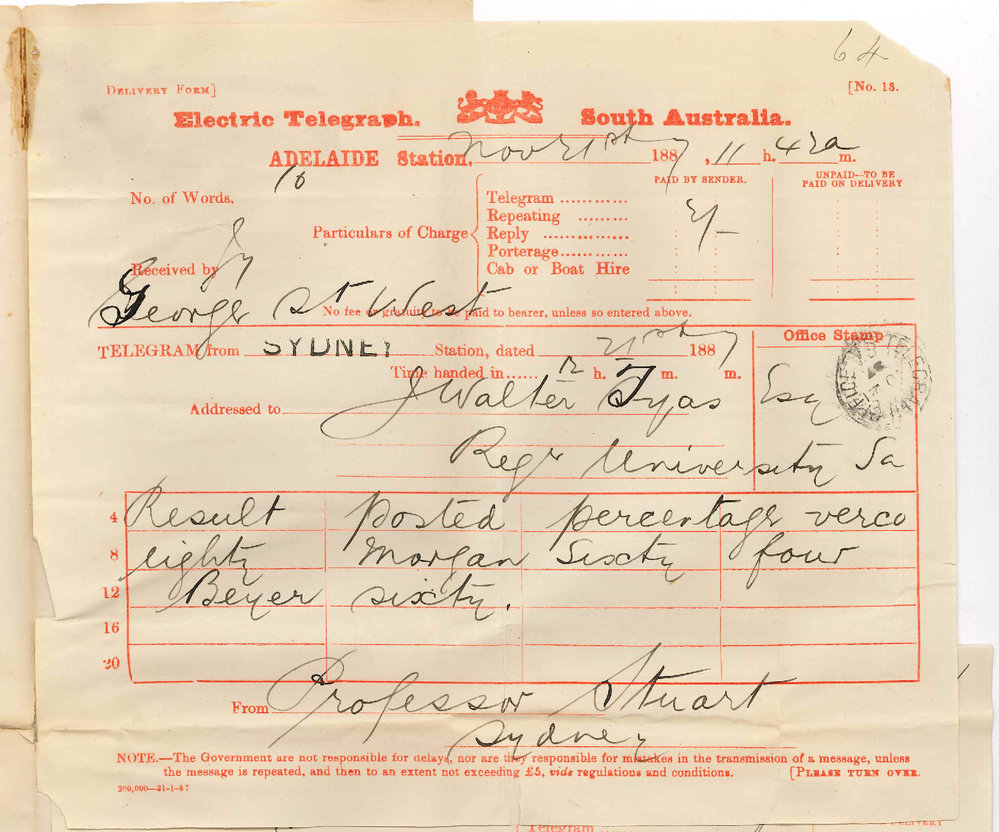 64
DELIVERY FORM]
[No. 13.
Electric Telegraph. South Australia.
ADELAIDE Station. Nov 21st 1887, 11 h. 42a m.
No. of Words, 10
Particulars of Charge
Telegram ............
Repeating .........
Reply ...............
Porterage............
Cab or Boat Hire
PAID BY SENDER.
2/-
UNPAID—TO BE
PAID ON DELIVERY
Received by
George St West
No fee or gratuity to be paid to bearer, unless so entered above.
TELEGRAM from SYDNEY Station, dated 21st 1887
Office Stamp
Time handed in...... 12 h. 7 m. m.
Addressed to J Walter Tyas Esq
Regr University Sa
4 Result posted percentage verco
8 eighty Morgan Sixty four
12 Beyer sixty.
16
20
From Professor Stuart
Sydney
NOTE.—The Government are not responsible for delays, nor are they responsible for mistakes in the transmission of a message, unless
the message is repeated, and then to an extent not exceeding £5, vide regulations and conditions. [PLEASE TURN OVER.
200,000—21-1-87
Telegram
DELIVERY